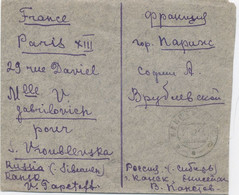 France
Paris XIII
29 rue Daviel
Mlle V.
Gabrilovich
pour
Vroublevska
Russia (Siberia)
Kansk
W. Papeteff
Франция
гор. Париж
Софии А
Врублевской
Россия (Сибирь)
г. Канск, Енисейск
В.